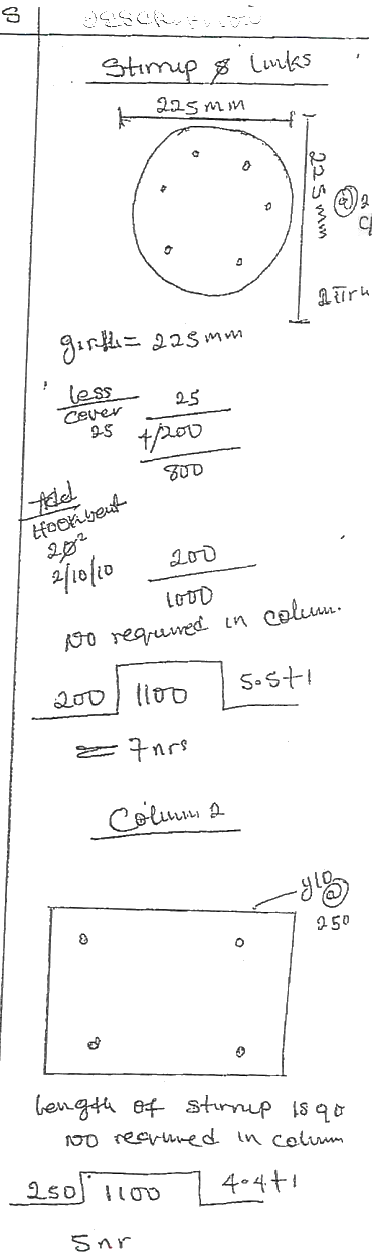 S DESCRIPTION
Stirrup & Links
225mm
225mm
@ 2
2πrh
girth = 225mm
less
cover 25
25 4/200
800
Add
Hook & bent
2ø²
2/10/10 200
1000
No required in column.
200 1100 5.5+1
= 7nrs
Column 2
y10@
250
Length of stirrup is 90
No required in column
250 1100 4.4+1
5nr